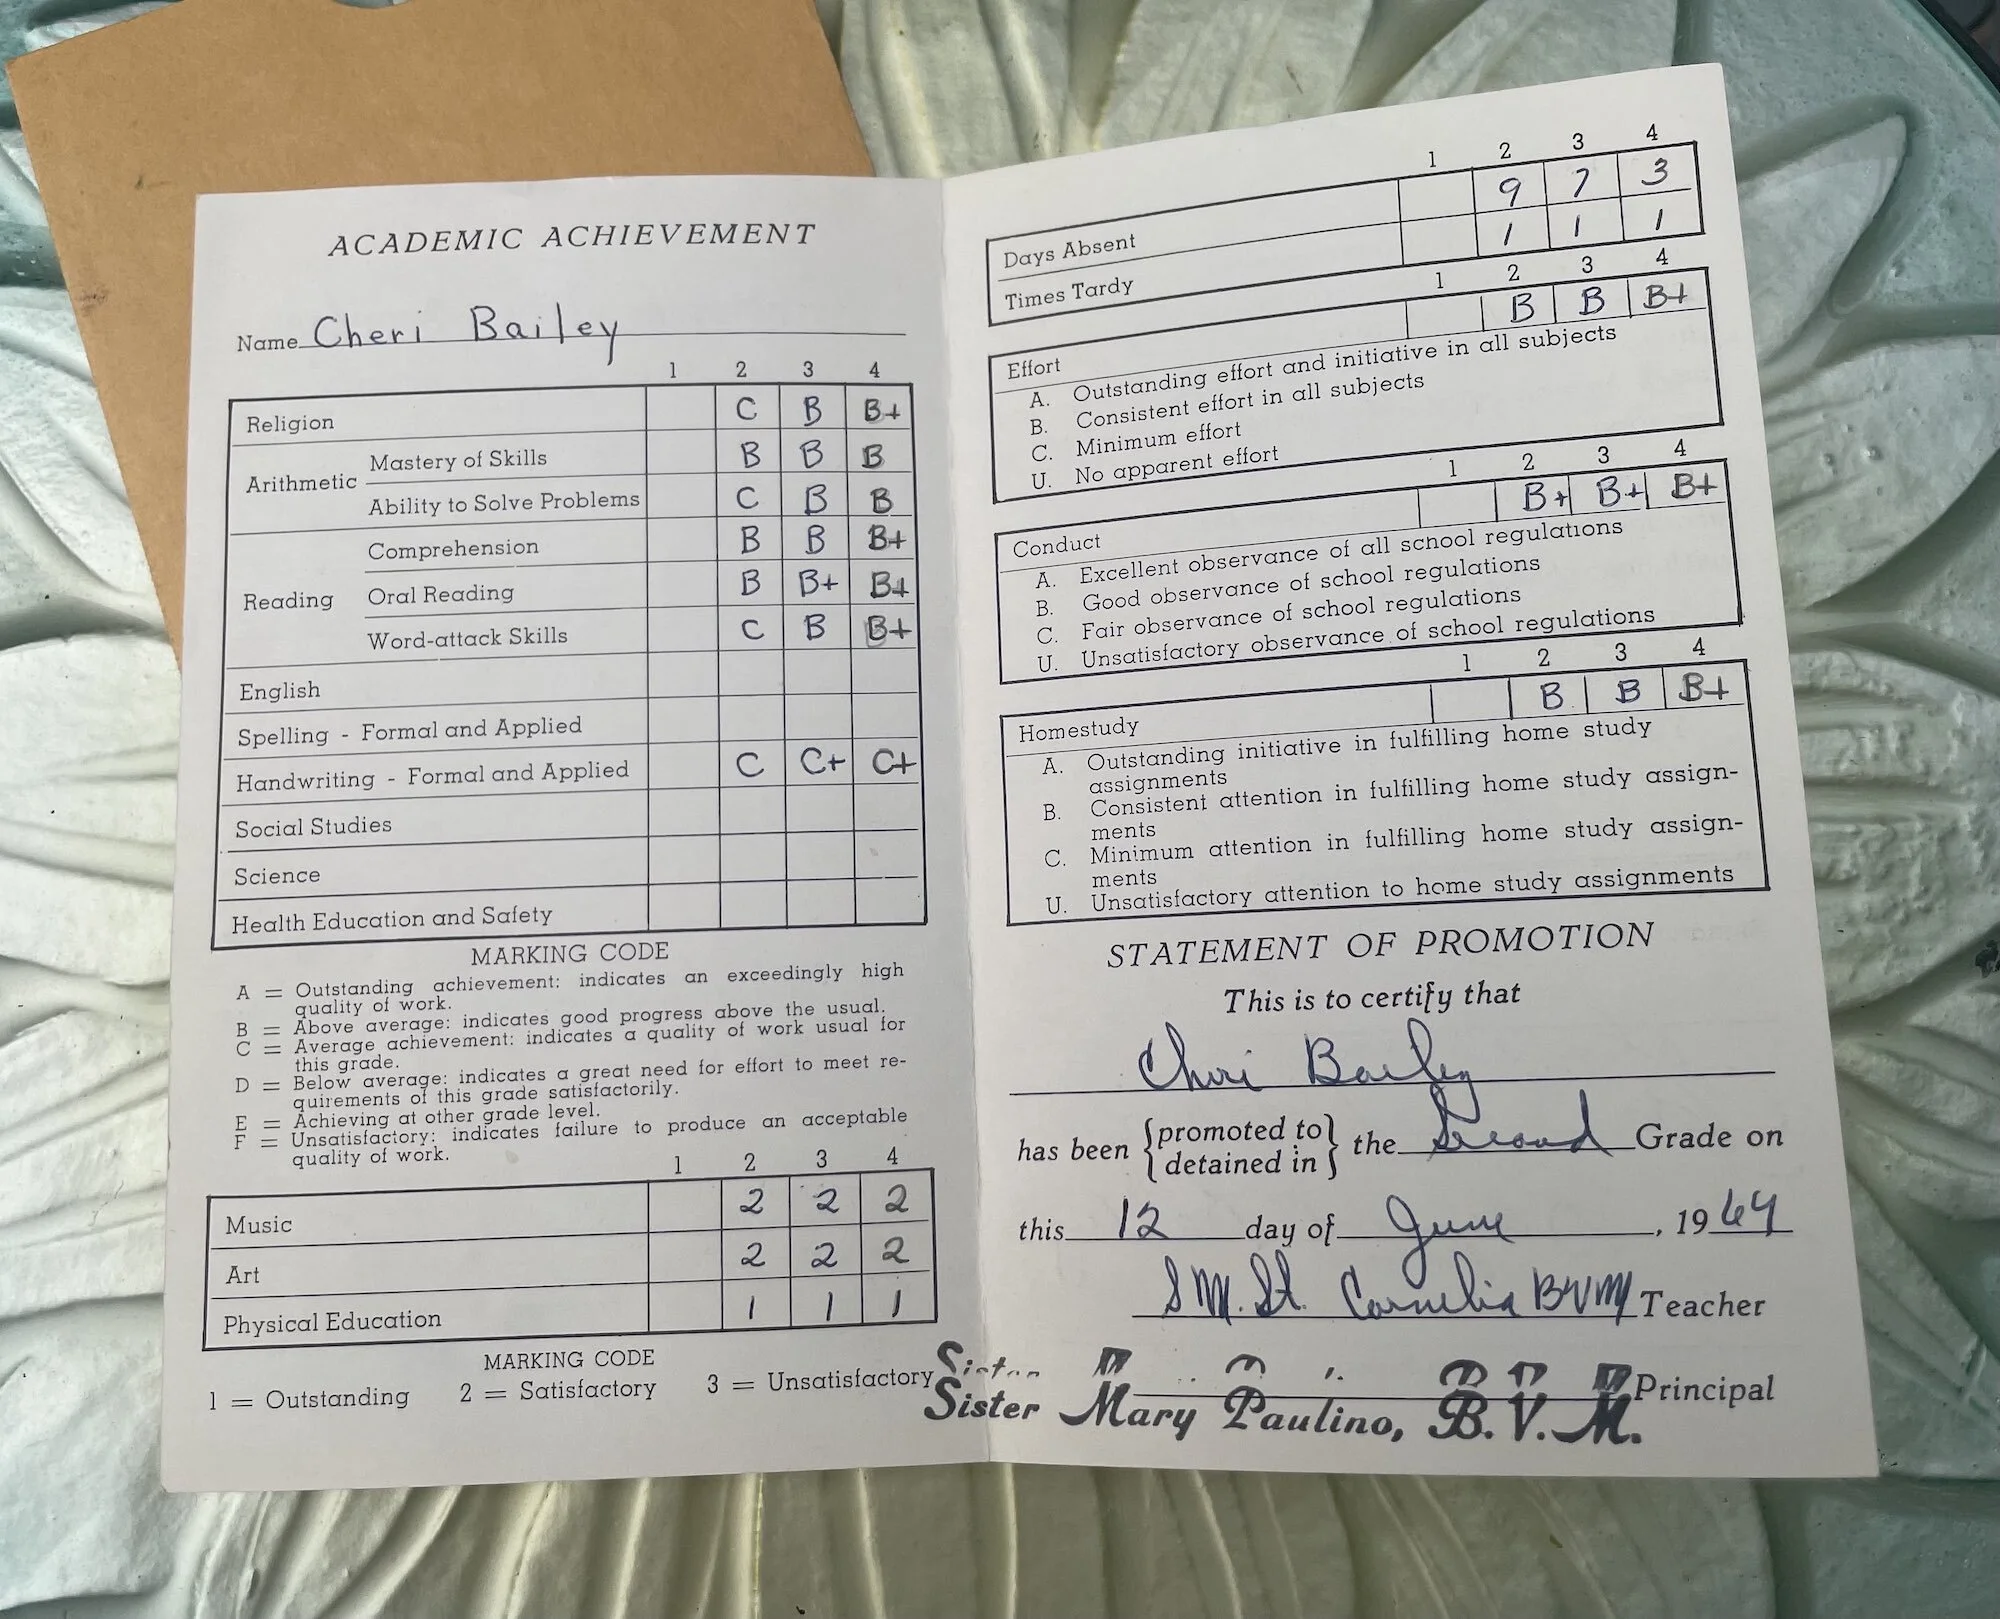 ACADEMIC ACHIEVEMENT
Name Cheri Bailey
1 2 3 4
Religion C B B+
Arithmetic
Mastery of Skills B B B
Ability to Solve Problems C B B
Reading
Comprehension B B B+
Oral Reading B B+ B+
Word-attack Skills C B B+
English
Spelling - Formal and Applied
Handwriting - Formal and Applied C C+ C+
Social Studies
Science
Health Education and Safety
MARKING CODE
A = Outstanding achievement: indicates an exceedingly high
quality of work.
B = Above average: indicates good progress above the usual.
C = Average achievement: indicates a quality of work usual for
this grade.
D = Below average: indicates a great need for effort to meet re-
quirements of this grade satisfactorily.
E = Achieving at other grade level.
F = Unsatisfactory: indicates failure to produce an acceptable
quality of work.
1 2 3 4
Music 2 2 2
Art 2 2 2
Physical Education 1 1 1
MARKING CODE
1 = Outstanding 2 = Satisfactory 3 = Unsatisfactory
1 2 3 4
Days Absent 9 7 3
Times Tardy 1 1 1
1 2 3 4
Effort B B B+
A. Outstanding effort and initiative in all subjects
B. Consistent effort in all subjects
C. Minimum effort
U. No apparent effort
1 2 3 4
Conduct B+ B+ B+
A. Excellent observance of all school regulations
B. Good observance of school regulations
C. Fair observance of school regulations
U. Unsatisfactory observance of school regulations
1 2 3 4
Homestudy B B B+
A. Outstanding initiative in fulfilling home study
assignments
B. Consistent attention in fulfilling home study assign-
ments
C. Minimum attention in fulfilling home study assign-
ments
U. Unsatisfactory attention to home study assignments
STATEMENT OF PROMOTION
This is to certify that
Cheri Bailey
has been {promoted to
detained in} the Second Grade on
this 12 day of June, 1964
S M. St. Cornelia BVM Teacher
Principal
Sister Mary Paulino, B. V. M.